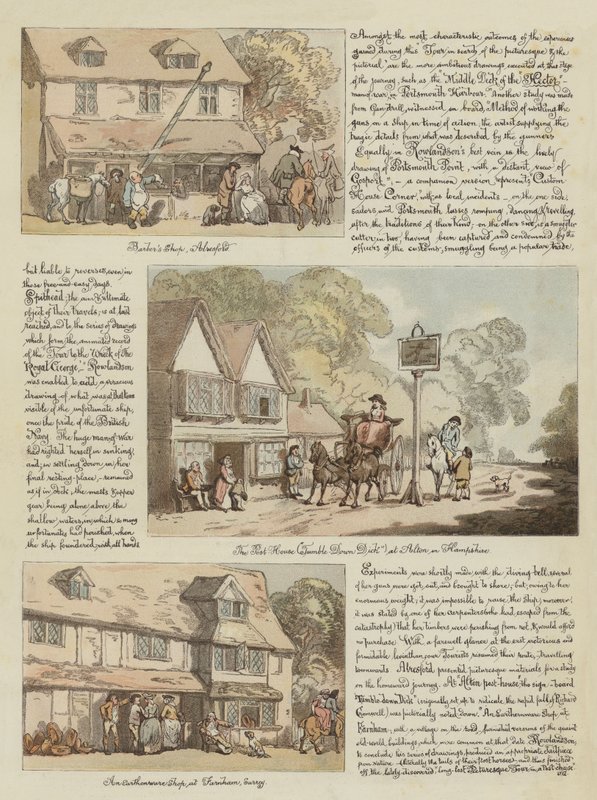 Amongst the most characteristic outcomes of the experiences
gained during this Tour, in search of the picturesque & the
pictorial" are the more ambitious drawings executed at this stage
of the journey, such as the "Middle Deck of the Hector –
man of war, in Portsmouth Harbour." Another study was made
from Gun drill, witnessed on board, "Method of working the
guns on a ship, in time of action", the artist supplying the
tragic details from what was described by the gunners
Equally in Rowlandson's best vein is the lively
drawing of "Portsmouth Point, with a distant view of
Gosport", – a companion version represents "Custom
House Corner," with as local incidents – on the one side,
sailors and Portsmouth lasses romping, dancing & revelling,
after the traditions of their kind; on the other side, is a smuggler
cutter in two, having been captured and condemned by the
officers of the customs, smuggling being a popular trade,
Barber's Shop, Alresford
but liable to reverses, even in
those free-and-easy days.
Spithead, the ultimate
object of their travels, is at last
reached, and to the series of drawings
which form the animated record
of the "Tour to the Wreck of the
Royal George," Rowlandson
was enabled to add a precious
drawing of what was at that time
visible of the unfortunate ship,
once the pride of the British
Navy. The huge man of war
had righted herself in sinking
and, in settling down, in her
final resting-place, remained
as if in dock, the masts & upper
gear being alone above the
shallow waters, in which so many
unfortunates had perished, when
the ship foundered, with all hands
The Post House ("Tumble Down Dick") at Alton, in Hampshire
Experiments were shortly made, with the diving bell, several
of her guns were got out, and brought to shore; but, owing to her
enormous weight, it was impossible to raise the ship; moreover
it was stated by one of her carpenters (who had escaped from the
catastrophe) that her timbers were perishing from rot, & would afford
no purchase. With a farewell glance at the erst notorious and
formidable leviathan, our Tourists resumed their route, travelling
homewards. Alresford presented picturesque materials for a study
on the homeward journey. At "Alton post-house," the sign-board
"Tumble-down Dick" (originally set up to ridicule the rapid fall of Richard
Cromwell) was pictorially noted down. "An Earthenware Shop, at
Farnham," with a village on the road, furnished versions of the quaint
old-world buildings, which were common at that date. Rowlandson,
to conclude his series of drawings, produced an appropriate tailpiece
from nature (literally the tails of their post horses) and thus finished
off the lately discovered, long-lost "Picturesque Tour in a Post chaise"
An Earthenware Shop, at Farnham, Surrey